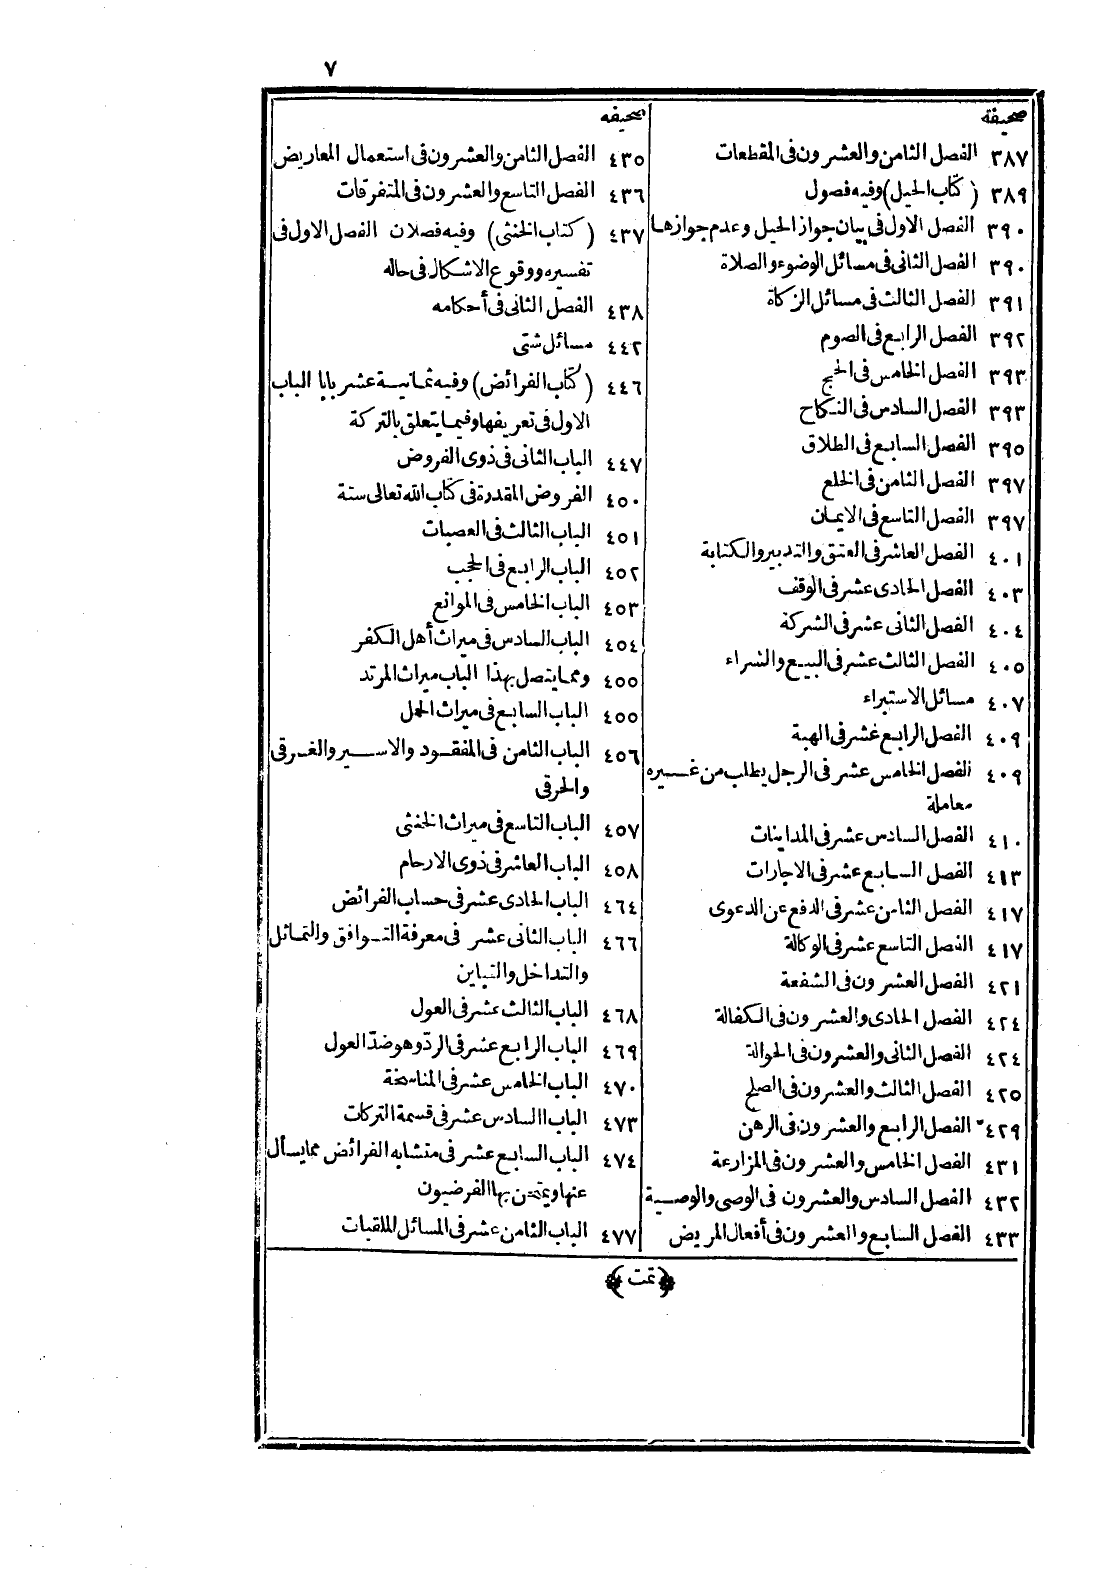 ٧
صحيفة
٣٨٧ الفصل الثامن والعشرون فى المقطعات
٣٨٩ (كتاب الحيل) وفيه فصول
٣٩٠ الفصل الاول فى بيان جواز الحيل وعدم جوازها
٣٩٠ الفصل الثانى فى مسائل الوضوء والصلاة
٣٩١ الفصل الثالث فى مسائل الزكاة
٣٩٢ الفصل الرابع فى الصوم
٣٩٣ الفصل الخامس فى الحج
٣٩٣ الفصل السادس فى النكاح
٣٩٥ الفصل السابع فى الطلاق
٣٩٧ الفصل الثامن فى الخلع
٣٩٧ الفصل التاسع فى الايمان
٤٠١ الفصل العاشر فى العتق والتدبير والكتابة
٤٠٣ الفصل الحادى عشر فى الوقف
٤٠٤ الفصل الثانى عشر فى الشركة
٤٠٥ الفصل الثالث عشر فى البيع والشراء
٤٠٧ مسائل الاستبراء
٤٠٩ الفصل الرابع عشر فى الهبة
٤٠٩ الفصل الخامس عشر فى الرجل يطلب من غيره
معاملة
٤١٠ الفصل السادس عشر فى المداينات
٤١٣ الفصل السابع عشر فى الاجارات
٤١٧ الفصل الثامن عشر فى الدفع عن الدعوى
٤١٧ الفصل التاسع عشر فى الوكالة
٤٢١ الفصل العشرون فى الشفعة
٤٢٤ الفصل الحادى والعشرون فى الكفالة
٤٢٤ الفصل الثانى والعشرون فى الحوالة
٤٢٥ الفصل الثالث والعشرون فى الصلح
٤٢٩ الفصل الرابع والعشرون فى الرهن
٤٣١ الفصل الخامس والعشرون فى المزارعة
٤٣٢ الفصل السادس والعشرون فى الوصى والوصية
٤٣٣ الفصل السابع والعشرون فى أفعال المريض
صحيفه
٤٣٥ الفصل الثامن والعشرون فى استعمال المعاريض
٤٣٦ الفصل التاسع والعشرون فى المتفرقات
٤٣٧ (كتاب الخنثى) وفيه فصلان الفصل الاول فى
تفسيره ووقوع الاشكال فى حاله
٤٣٨ الفصل الثانى فى أحكامه
٤٤٢ مسائل شتى
٤٤٦ (كتاب الفرائض) وفيه ثمانية عشر بابا الباب
الاول فى تعريفها وفيما يتعلق بالتركة
٤٤٧ الباب الثانى فى ذوى الفروض
٤٥٠ الفروض المقدرة فى كتاب الله تعالى ستة
٤٥١ الباب الثالث فى العصبات
٤٥٢ الباب الرابع فى الحجب
٤٥٣ الباب الخامس فى الموانع
٤٥٤ الباب السادس فى ميراث أهل الكفر
٤٥٥ ومما يتصل بهذا الباب ميراث المرتد
٤٥٥ الباب السابع فى ميراث الحمل
٤٥٦ الباب الثامن فى المفقود والاسير والغرقى
والحرقى
٤٥٧ الباب التاسع فى ميراث الخنثى
٤٥٨ الباب العاشر فى ذوى الارحام
٤٦٤ الباب الحادى عشر فى حساب الفرائض
٤٦٦ الباب الثانى عشر فى معرفة التوافق والتماثل
والتداخل والتباين
٤٦٨ الباب الثالث عشر فى العول
٤٦٩ الباب الرابع عشر فى الردّ وهو ضدّ العول
٤٧٠ الباب الخامس عشر فى المناسخة
٤٧٣ الباب السادس عشر فى قسمة التركات
٤٧٤ الباب السابع عشر فى متشابه الفرائض مما يسأل
عنها ويمتحن بها الفرضيون
٤٧٧ الباب الثامن عشر فى المسائل الملقبات
(تمت)